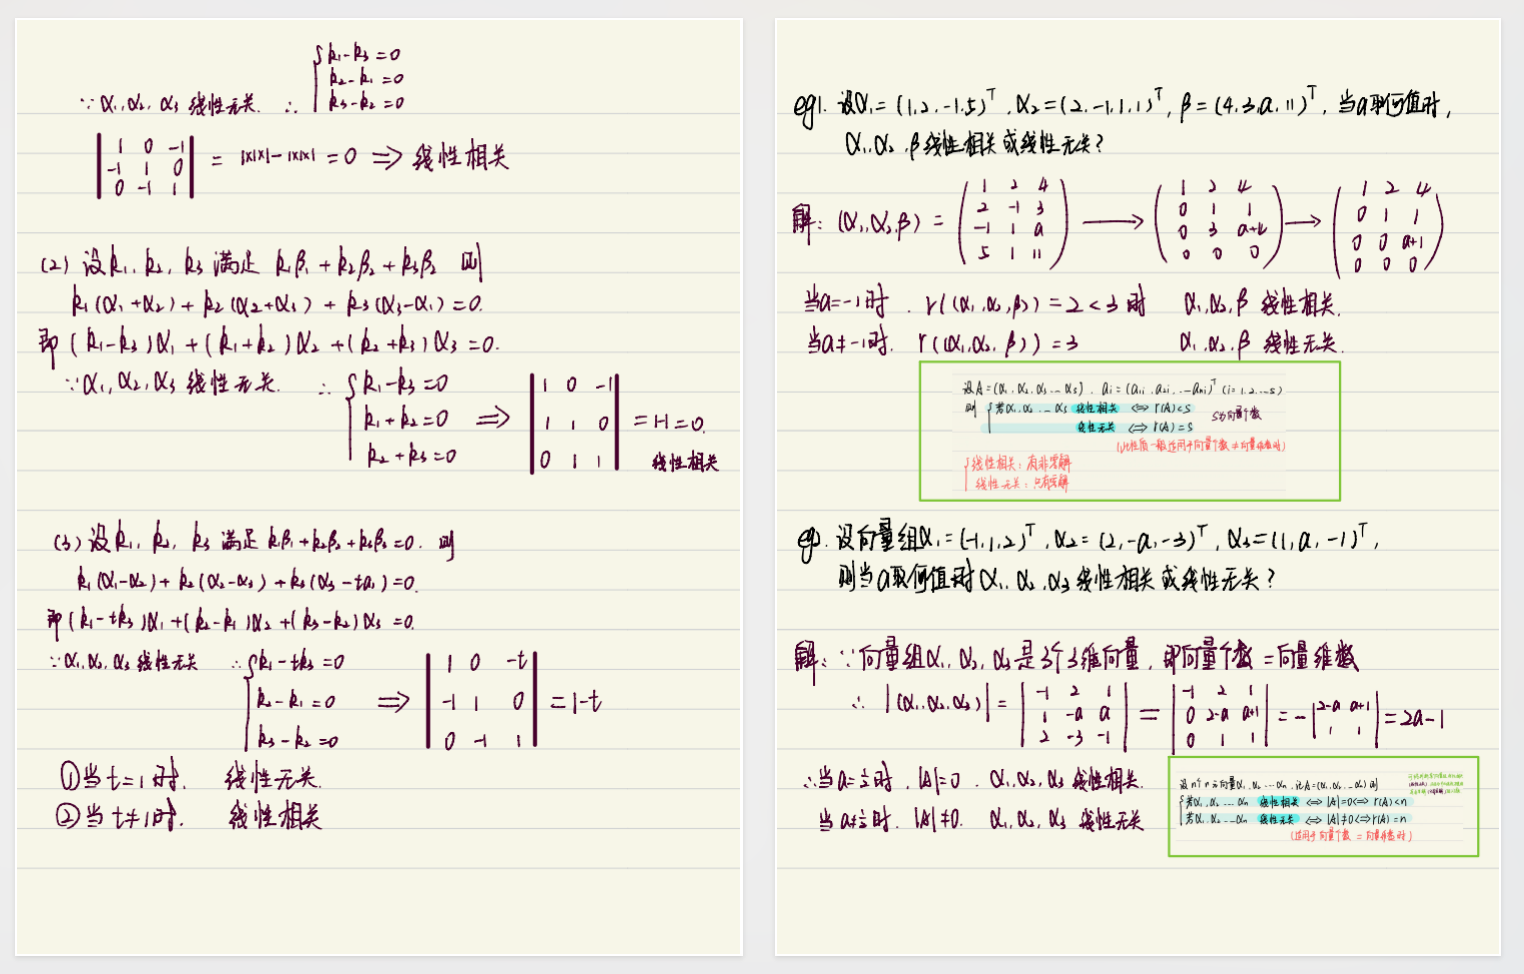 k₁-k₃=0
k₂-k₁=0
∵ α₁,α₂,α₃ 线性无关. ∴ k₃-k₂=0
1 0 -1
-1 1 0 = 1×1×1-1×1×1=0 ⟹ 线性相关
0 -1 1
(2) 设k₁, k₂, k₃ 满足 k₁β₁+k₂β₂+k₃β₂ 则
k₁(α₁+α₂)+k₂(α₂+α₃)+k₃(α₃-α₁)=0.
即 (k₁-k₃)α₁+(k₁+k₂)α₂+(k₂+k₃)α₃=0.
∵α₁,α₂,α₃ 线性无关. ∴ k₁-k₃=0 1 0 -1
k₁+k₂=0 ⟹ 1 1 0 =1-1=0.
k₂+k₃=0 0 1 1 线性相关
(3) 设k₁, k₂, k₃ 满足 k₁β₁+k₂β₂+k₃β₃=0. 则
k₁(α₁-α₂)+k₂(α₂-α₃)+k₃(α₃-tα₁)=0.
即(k₁-tk₃)α₁+(k₂-k₁)α₂+(k₃-k₂)α₃=0.
∵α₁,α₂,α₃ 线性无关 ∴ k₁-tk₃=0 1 0 -t
k₂-k₁=0 ⟹ -1 1 0 =1-t
k₃-k₂=0 0 -1 1
①当t=1时. 线性无关.
②当t≠1时. 线性相关
eg1. 设α₁=(1,2,-1,5)ᵀ,α₂=(2,-1,1,1)ᵀ,β=(4,3,a,11)ᵀ, 当a取何值时,
α₁,α₂,β线性相关或线性无关?
1 2 4 1 2 4 1 2 4
解: (α₁,α₂,β) = 2 -1 3 ⟶ 0 1 1 ⟶ 0 1 1
-1 1 a 0 3 a+4 0 0 a+1
5 1 11 0 0 0 0 0 0
当a=-1时. r((α₁,α₂,β))=2<3时 α₁,α₂,β 线性相关.
当a≠-1时. r((α₁,α₂,β))=3 α₁,α₂,β 线性无关.
设A=(α₁,α₂,α₃…αs), αi=(a₁i,a₂i,…ani)ᵀ (i=1,2…s)
则 若α₁,α₂…αs 线性相关 ⟺ r(A)<s s为向量个数
线性无关 ⟺ r(A)=s
(此性质一般适用于向量个数≠向量维数时)
线性相关: 有非零解
线性无关: 只有零解
eg2. 设向量组α₁=(-1,1,2)ᵀ,α₂=(2,-a,-3)ᵀ,α₃=(1,a,-1)ᵀ,
则当a取何值时α₁,α₂,α₃线性相关或线性无关?
解: ∵向量组α₁,α₂,α₃是3个3维向量, 即向量个数=向量维数
-1 2 1 -1 2 1
∴ |(α₁,α₂,α₃)| = 1 -a a = 0 2-a a+1 = - 2-a a+1 =2a-1
2 -3 -1 0 1 1 1 1
∴当a=½时. |A|=0. α₁,α₂,α₃ 线性相关.
当a≠½时. |A|≠0. α₁,α₂,α₃ 线性无关
设n个n元向量α₁,α₂…αn,记A=(α₁,α₂,…αn) 则
若α₁,α₂…αn 线性相关 ⟺ |A|=0⟺ r(A)<n
若α₁,α₂…αn 线性无关 ⟺ |A|≠0⟺r(A)=n
(适用于向量个数=向量维数时)